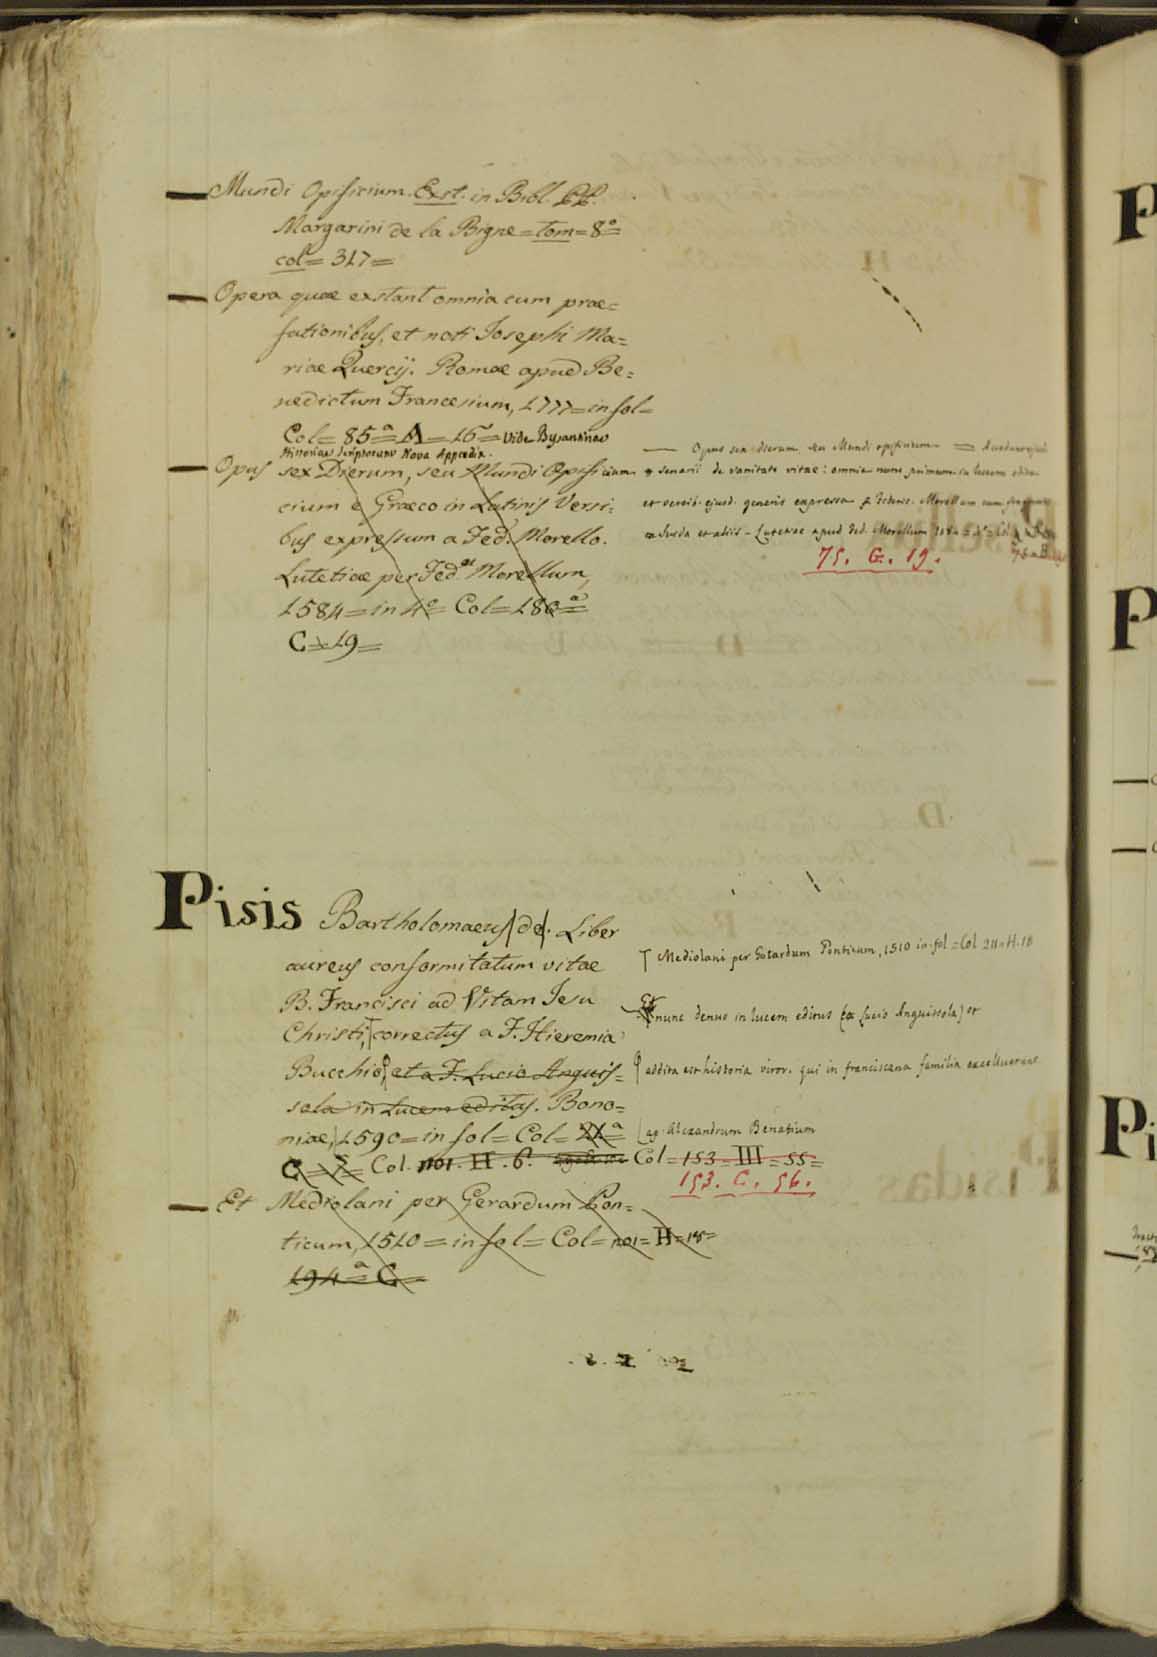 Mundi Opificium. Exst. in Bibl. PP.
Margarini de la Bigne = tom = 8°=
col = 317 =
Opera quae exstant omnia cum prae=
fationibus, et notis Josephi Ma=
riae Quercij. Romae apud Be=
nedictum Francesium, 1777 = in fol =
Col = 85ª = A = 16 = Vide Byzantinae
Historiae Scriptorum Nova Appendix.
Opus sex Dierum, seu Mundi Opificium
cium e Graeco in Latinis Versi=
bus expressum a Fed. Morello.
Lutetiae per Fed.um Morellum,
1584 = in 4° = Col = 180ª =
C = 19 =
Opus sex dierum seu Mundi opificium =
senarii de vanitate vitae: omnia nunc primum in lucem edita
et versib. ejusd. generis expressa Morellum cum
ex Suida et aliis - Lutetiae apud Fed. Morellum
75. G. 19.
Pisis Bartholomaeus (de). Liber
aureus conformitatum vitae
B. Francisci ad Vitam Jesu
Christi, correctus a F. Hieremia
Bucchio, et a F. Lucio Anguis=
sola in Lucem editus. Bono=
niae, 1590 = in fol = Col = 21ª =
C = 7 = Col. 101. H. 6. Col = 153 = III = 55 =
153. C. 56.
Mediolani per Gotardum Ponticum, 1510 in fol = Col 211 = H. 18
Et nunc denuo in lucem editus (a Lucio Anguissola) et
addita est historia viror. qui in franciscana familia excelluerunt
ap. Alexandrum Benatium
Et Mediolani per Gerardum Pon=
ticum, 1510 = in fol = Col = 101 = H = 18 =
194ª = C =